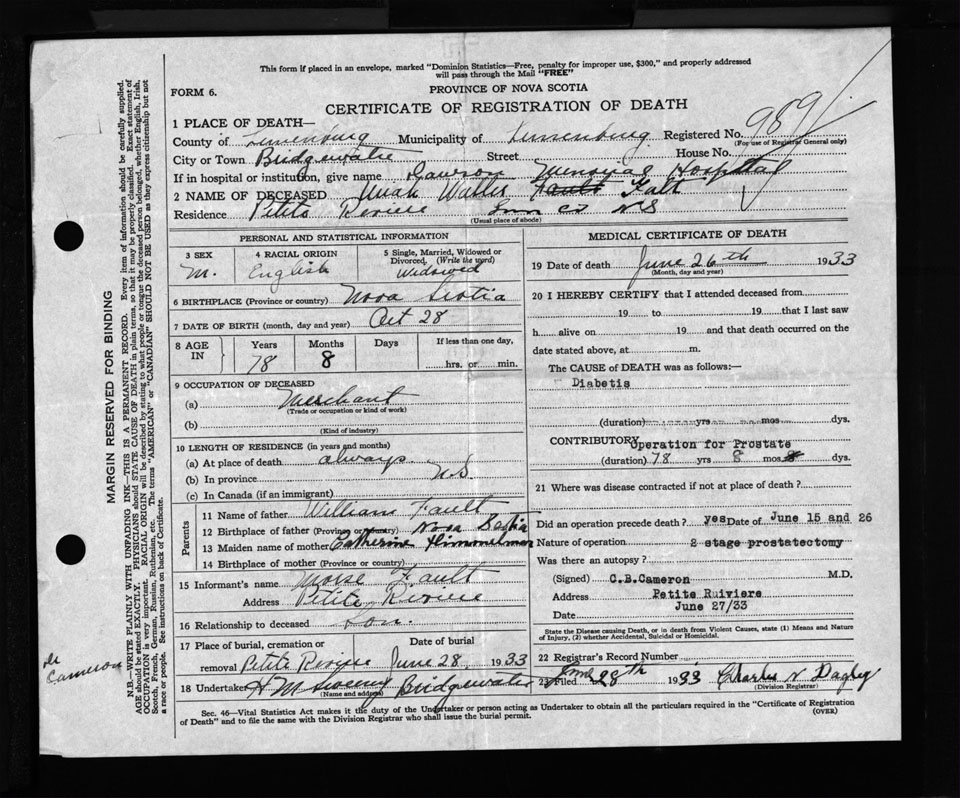 This form if placed in an envelope, marked "Dominion Statistics—Free, penalty for improper use, $300," and properly addressed
will pass through the Mail "FREE"
FORM 6.
PROVINCE OF NOVA SCOTIA
CERTIFICATE OF REGISTRATION OF DEATH
1 PLACE OF DEATH—
County of Lunenburg Municipality of Lunenburg Registered No. 989
(For use of Registrar General only)
City or Town Bridgewater Street House No.
If in hospital or institution, give name Dawson Memorial Hospital
2 NAME OF DECEASED Uriah Walter Fault Falt
Residence Petite Riviere Lun Co NS
(Usual place of abode)
PERSONAL AND STATISTICAL INFORMATION
3 SEX 4 RACIAL ORIGIN 5 Single, Married, Widowed or Divorced, (Write the word)
M. English Widowed
6 BIRTHPLACE (Province or country) Nova Scotia
7 DATE OF BIRTH (month, day and year) Oct 28
8 AGE IN Years Months Days If less than one day,
78 8 hrs. or min.
9 OCCUPATION OF DECEASED
(a) Merchant
(Trade or occupation or kind of work)
(b)
(Kind of industry)
10 LENGTH OF RESIDENCE (in years and months)
(a) At place of death always
(b) In province N.S.
(c) In Canada (if an immigrant)
Parents
11 Name of father William Fault
12 Birthplace of father (Province or country) Nova Scotia
13 Maiden name of mother Catherine Himmelman
14 Birthplace of mother (Province or country)
15 Informant's name Morse Fault
Address Petite Riviere
16 Relationship to deceased Son.
17 Place of burial, cremation or removal Petite Riviere Date of burial June 28 1933
18 Undertaker H M Bridgewater
(Name and address)
MEDICAL CERTIFICATE OF DEATH
19 Date of death June 26th 1933
(Month, day and year)
20 I HEREBY CERTIFY that I attended deceased from
19 to 19 that I last saw
h alive on 19 and that death occurred on the
date stated above, at m.
The CAUSE of DEATH was as follows:—
Diabetis
(duration) yrs mos. dys.
CONTRIBUTORY Operation for Prostate
(duration) 78 yrs 8 mos 8 dys.
21 Where was disease contracted if not at place of death?
Did an operation precede death? yes Date of June 15 and 26
Nature of operation 2 stage prostatectomy
Was there an autopsy?
(Signed) C.B.Cameron M.D.
Address Petite Ruiviere
Date June 27/33
State the Disease causing Death, or in death from Violent Causes, state (1) Means and Nature of Injury, (2) whether Accidental, Suicidal or Homicidal.
22 Registrar's Record Number
23 Filed June 28th 1933 Charles N Dagley
(Division Registrar)
Sec. 46—Vital Statistics Act makes it the duty of the Undertaker or person acting as Undertaker to obtain all the particulars required in the "Certificate of Registration
of Death" and to file the same with the Division Registrar who shall issue the burial permit.
(OVER)
MARGIN RESERVED FOR BINDING
N.B.—WRITE PLAINLY WITH UNFADING INK—THIS IS A PERMANENT RECORD. Every item of information should be carefully supplied.
AGE should be stated EXACTLY. PHYSICIANS should STATE CAUSE OF DEATH in plain terms, so that it may be properly classified. Exact statement of
OCCUPATION is very important. RACIAL ORIGIN will be described by stating to what people or tongue the deceased person belonged, whether English, Irish,
Scotch, French, German, Russian, Ruthenian, etc. The terms "AMERICAN" or "CANADIAN" SHOULD NOT BE USED as they express citizenship but not
a race or people. See instructions on back of Certificate.
Dr Cameron